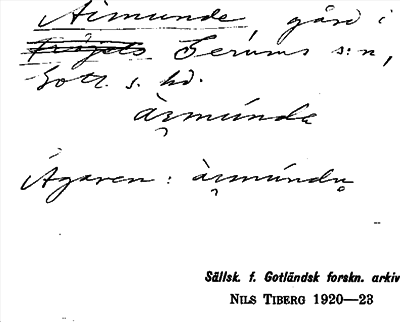 Armunde, gård i
Fröjels Lerums s:n,
Gotl. s. hd.
àrmúnda
Ägaren: àrmúndu
Sällsk. f. Gotländsk forskn. arkiv
NILS TIBERG 1920—23